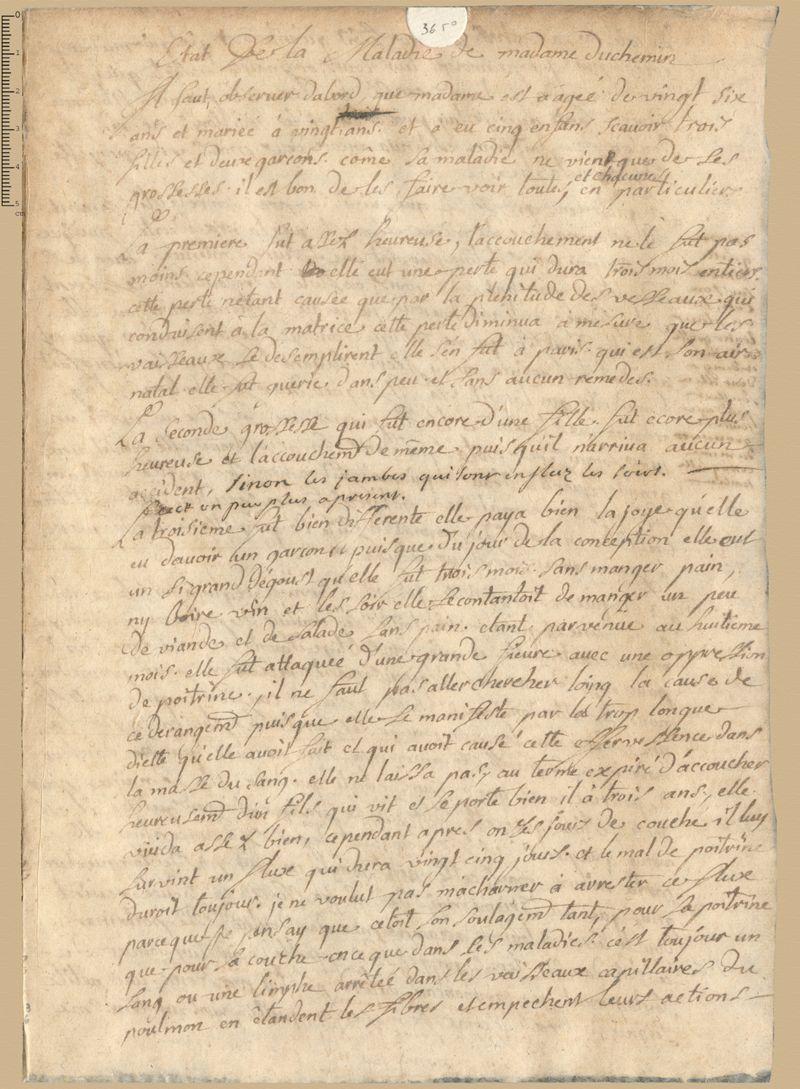 365°
Etat De la Maladie de madame duchemin
Il faut observer dabord que madame est aageé de vingt six
ans et marieé á vingt ans. et a eu cinq enfans scavoir trois
filles et deux garcons. côme sa maladie ne vient que de ses
grossesses. il est bon de les faire voir toutes et chacunes en particulier
La premiere fut assez heureuse, l'accouchement ne le fut pas
moins cependent elle eut une perte qui dura trois mois entiers.
cette perte nétant causée que par la plenitude des vesseaux qui
conduisent à la matrice cette perte diminua à mesure que les
vaisseaux se desemplirent elle sén fut à paris qui est son air
natal elle fut guerie dans peu et sans aucun remedes.
La seconde grossesse qui fut encore d'une fille. fut ecore plus
heureuse et l'accouchemt de même puis qu'il n'arriva aucun
accident, sinon les jambes qui sont enflez les soirs.
et un peu plus apresent.
La troisieme fut bien differente elle paya bien la joye qu'elle
eu d'avoir un garcon puisque du jour de la conception elle eut
un si grand dégoust qu'elle fut trois mois sans manger pain,
ny boire vin et les soir elle se contantoit de manger un peu
de viande et de salade sans pain. etant parvenüe au huitieme
mois. elle fut attaqueé d'une grande fievre avec une oppression
de poitrine, il ne faut pas aller chercher loing la cause de
ce derangemt puisque elle se manifeste par la trop longue
diette qu'elle avoit fait et qui avoit causé cette effervessence dans
la masse du sang. elle ne laissa pas, au terme expiré d'accoucher
heureusemt d'un fils qui vit et se porte bien il à trois ans, elle
vuida assez bien, cependant apres onzes jours de couche il luy
survint un fluxe qui dura vingt cinq jours. et le mal de poitrine
duroit toujours. je ne voulut pas m'acharner à arrester ce fluxe
parceque je pensay que cetoit son soulagemt tant, pour sa poitrine
que pour sa couche ence que dans ses maladies c'est toujour un
sang ou une limphe arrêteé dans les vaisseaux capillaires du
poulmon en êtandent les fibres et empechent leurs actions